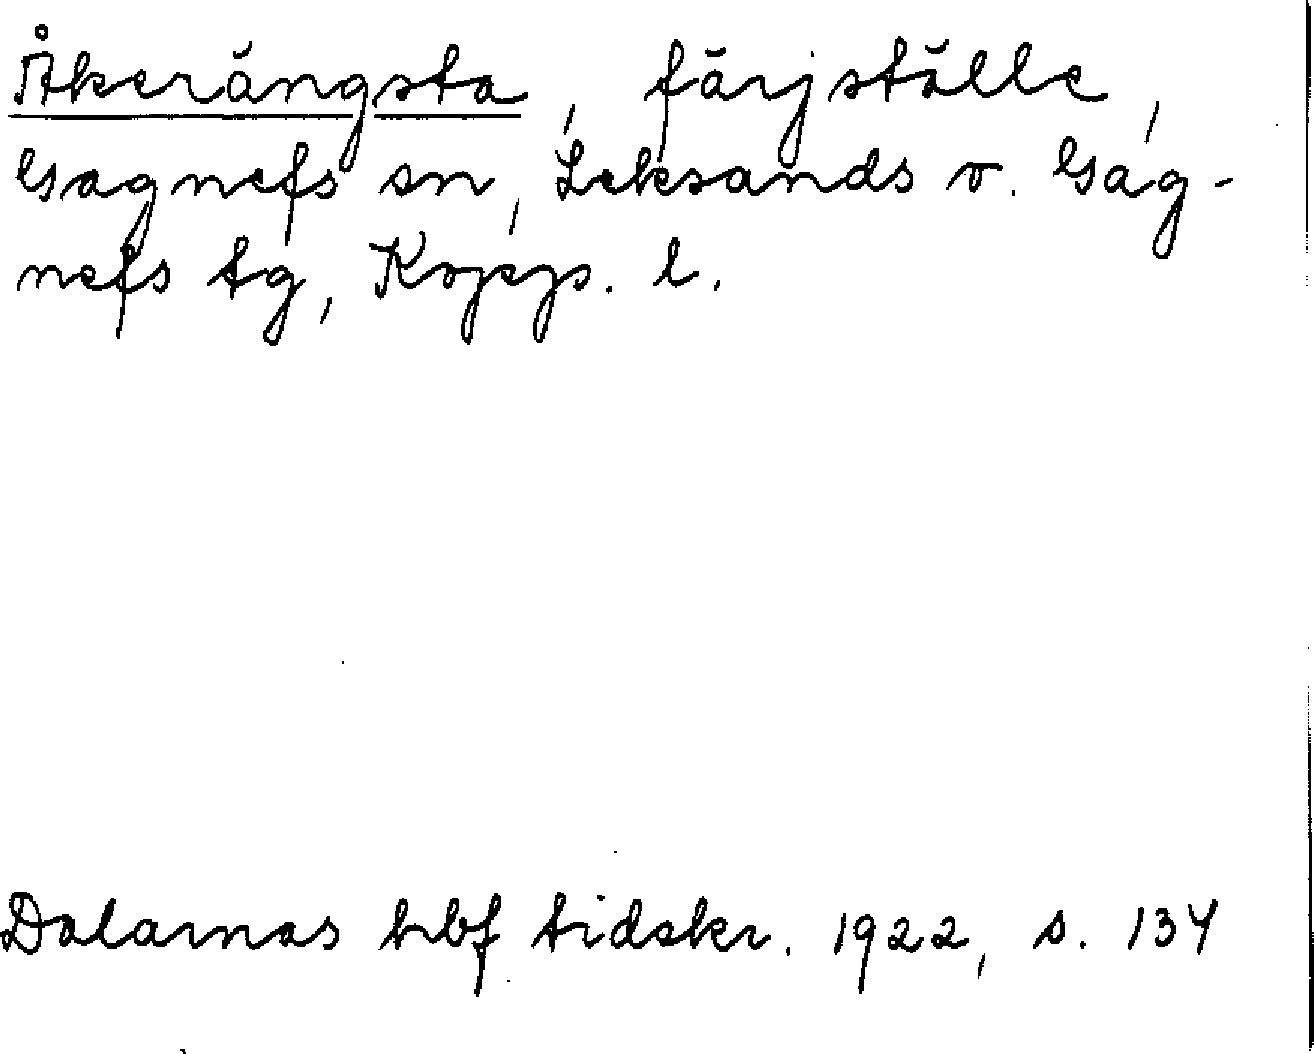 Åkerängsta, färjställe,
Gagnefs sn, Leksands o. Gag-
nefs tg, Kopp. l.
Dalarnas hbf tidskr. 1922, s. 134